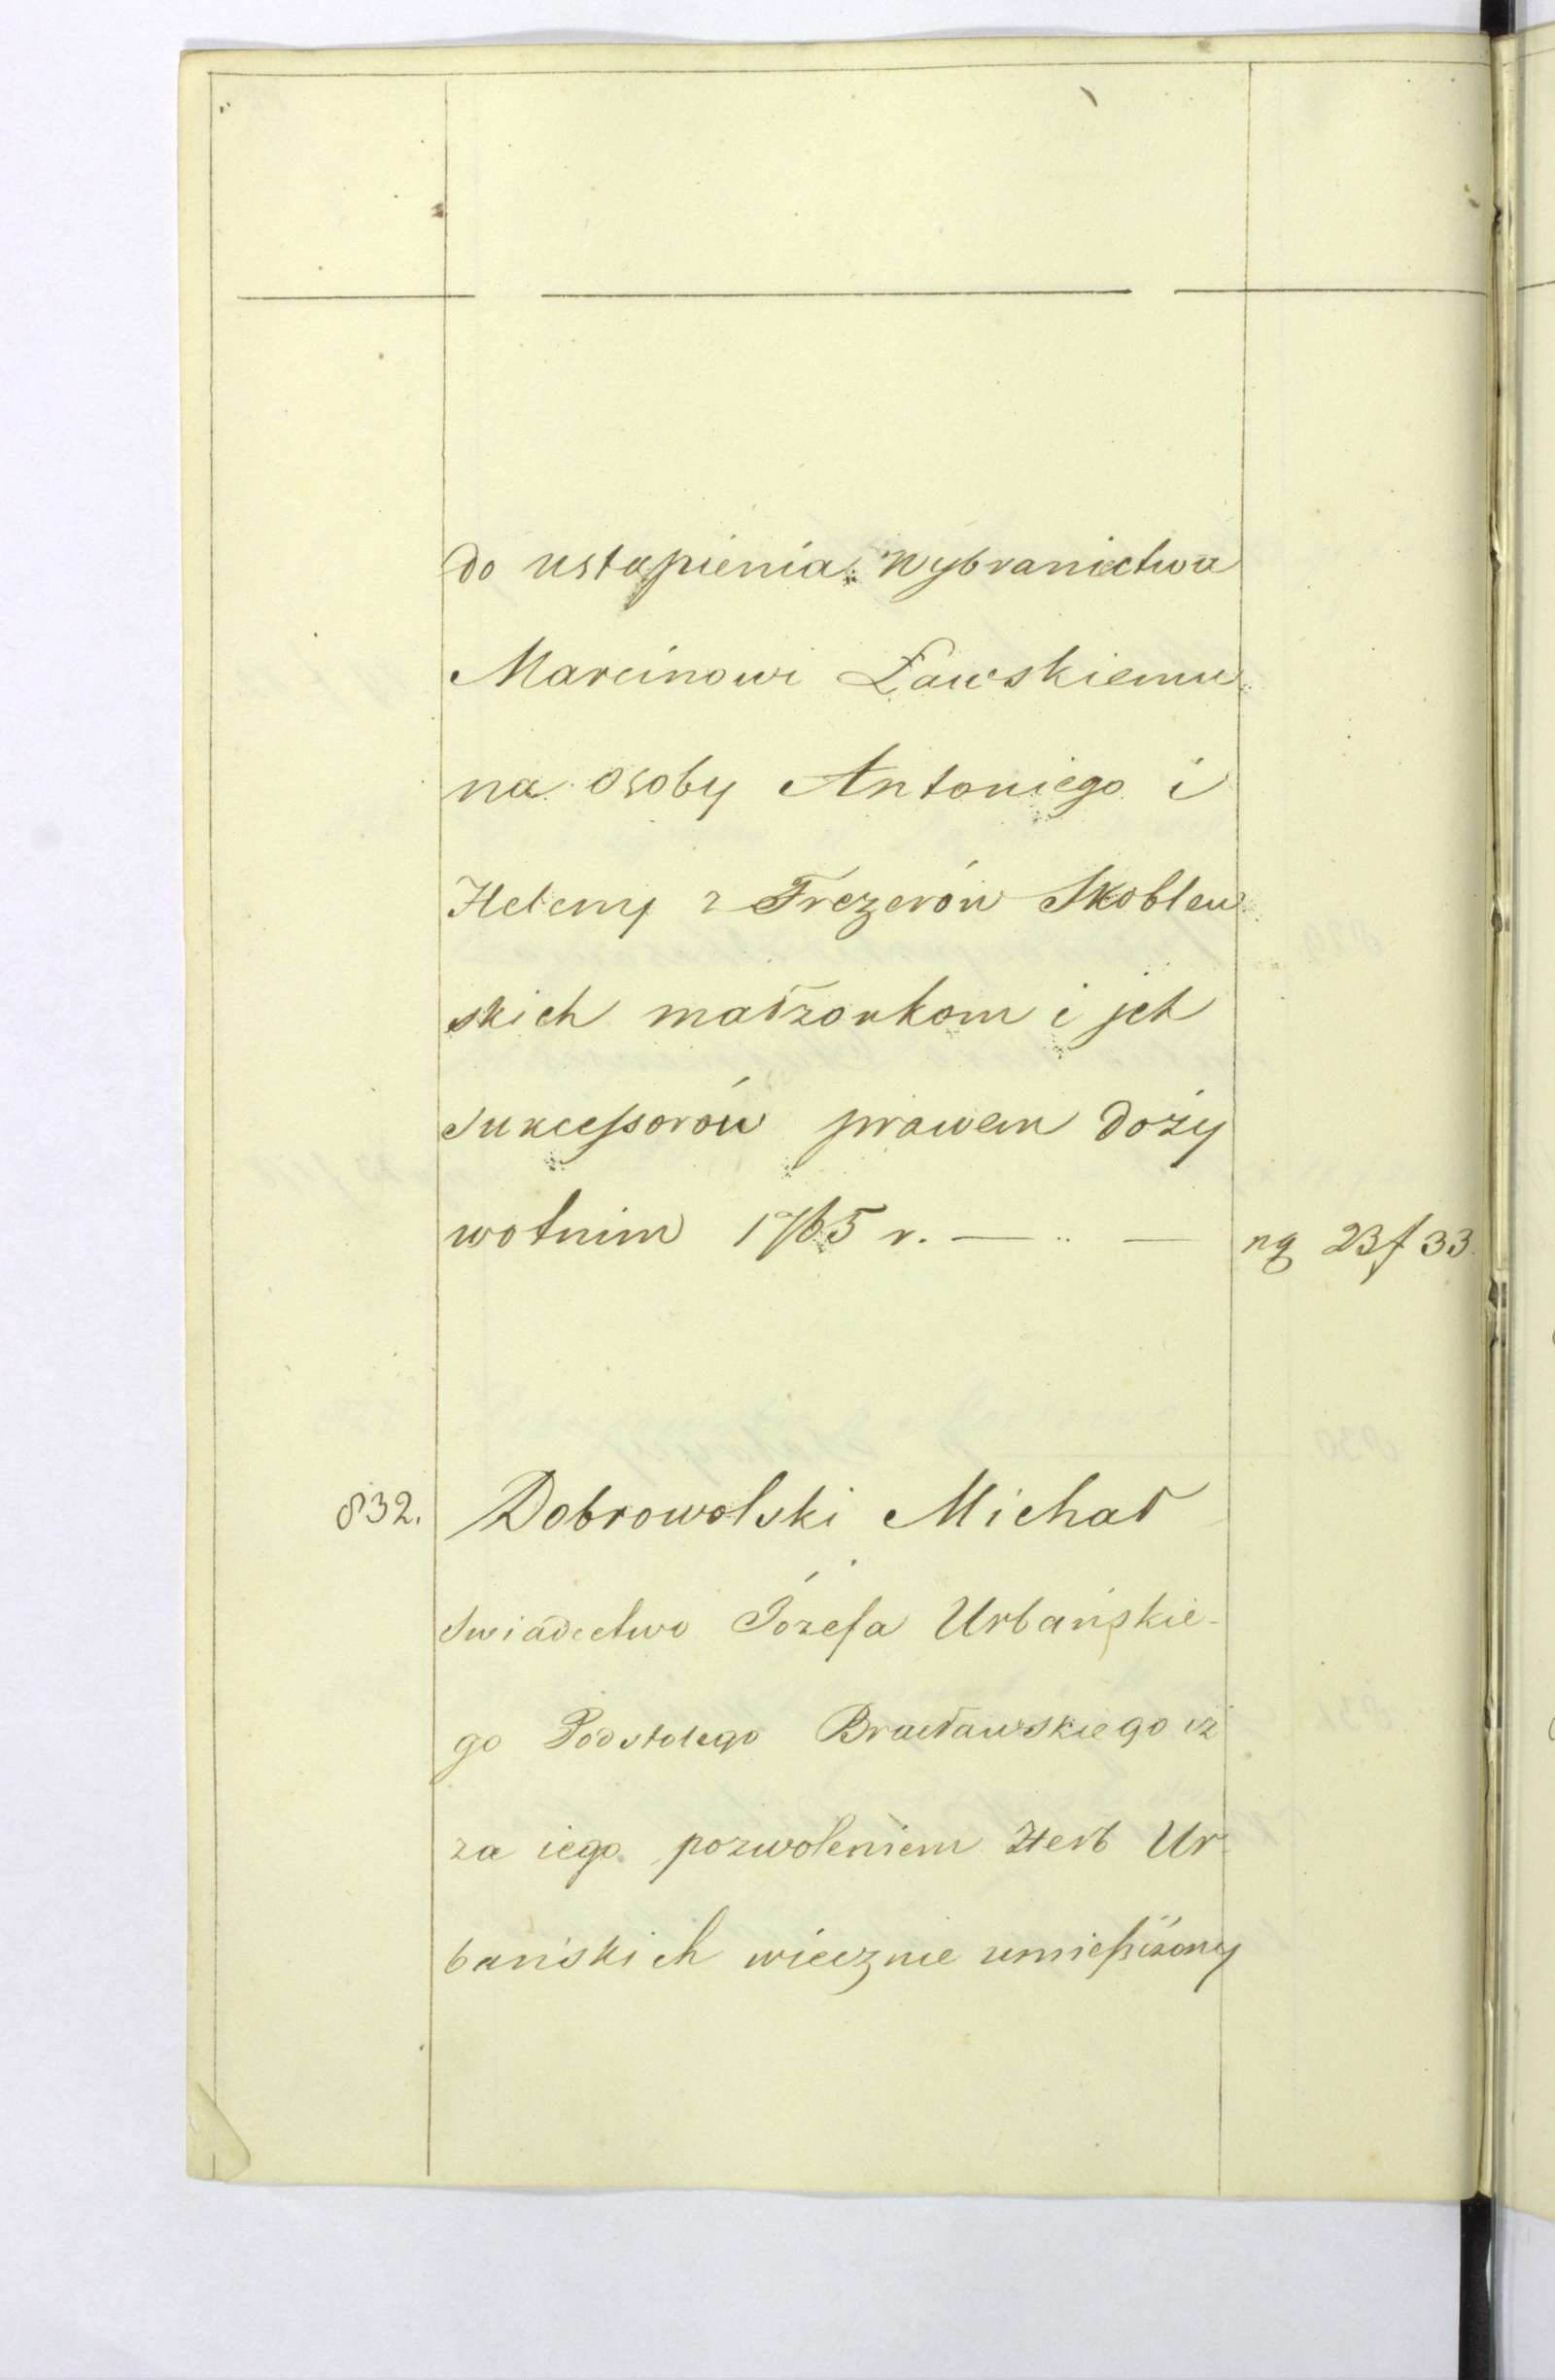 do ustąpienia Wybraniectwa
Marcinowi Ławskiemu
na osoby Antoniego i
Heleny z Frezerów Skoblew
skich małżonkom i jch
sukcessorów prawem doży
wotnim 1765 r. — .. — ng 23 f 33.
832. Dobrowolski Michał
swiadectwo Józefa Urbańskie-
go Podstolego Bracławskiego iż
za iego pozwoleniem Herb Ur
bańskich wiecznie